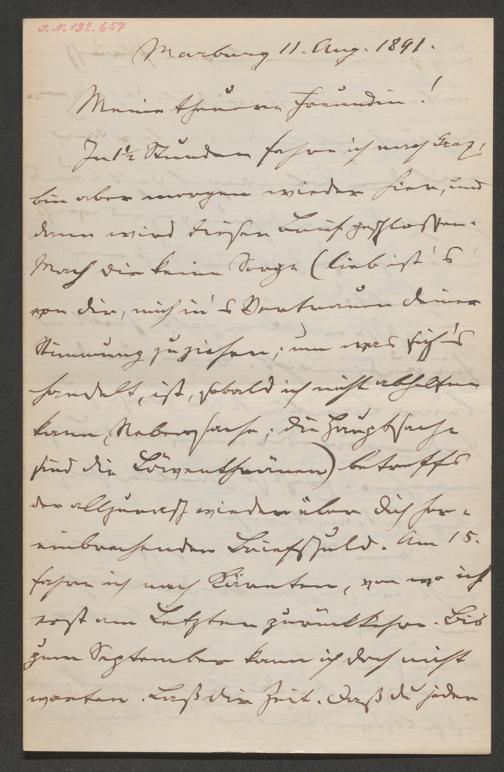 J. N. 132.657
Marburg 11. Aug. 1891.
Meine theuere Freundin!
In 1½ Stunden fahre ich nach Graz,
bin aber morgen wieder hier, und
dann wird dieser Brief geschlossen.
Mach dir keine Sorge (lieb ist's
von dir, mich in's Vertrauen deiner
Stimmung zu ziehen; um was sich's
handelt, ist, sobald ich nicht abhelfen
kann, Nebensache; die Hauptsache
sind die Löwenthränen) betreffs
der allzurasch wieder über dich her-
einbrechenden Briefschuld. Am 15.
fahre ich nach Kärnten, von wo ich
erst am Letzten zurückkehre. Bis
zum September kann ich doch nicht
warten. Laß dir Zeit. Daß du jeden